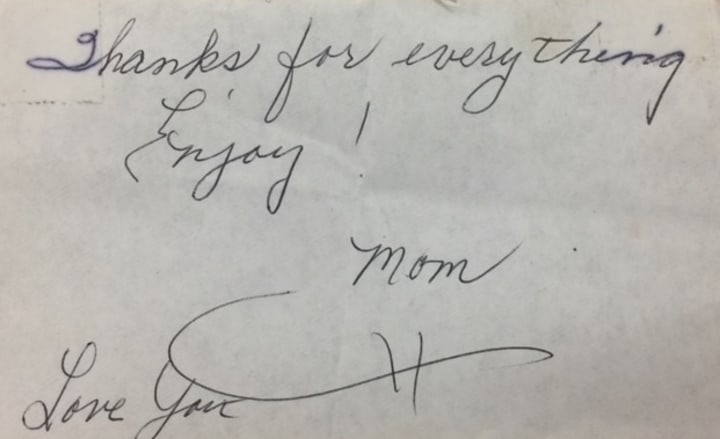 Thanks for everything
Enjoy!
Mom
Love You